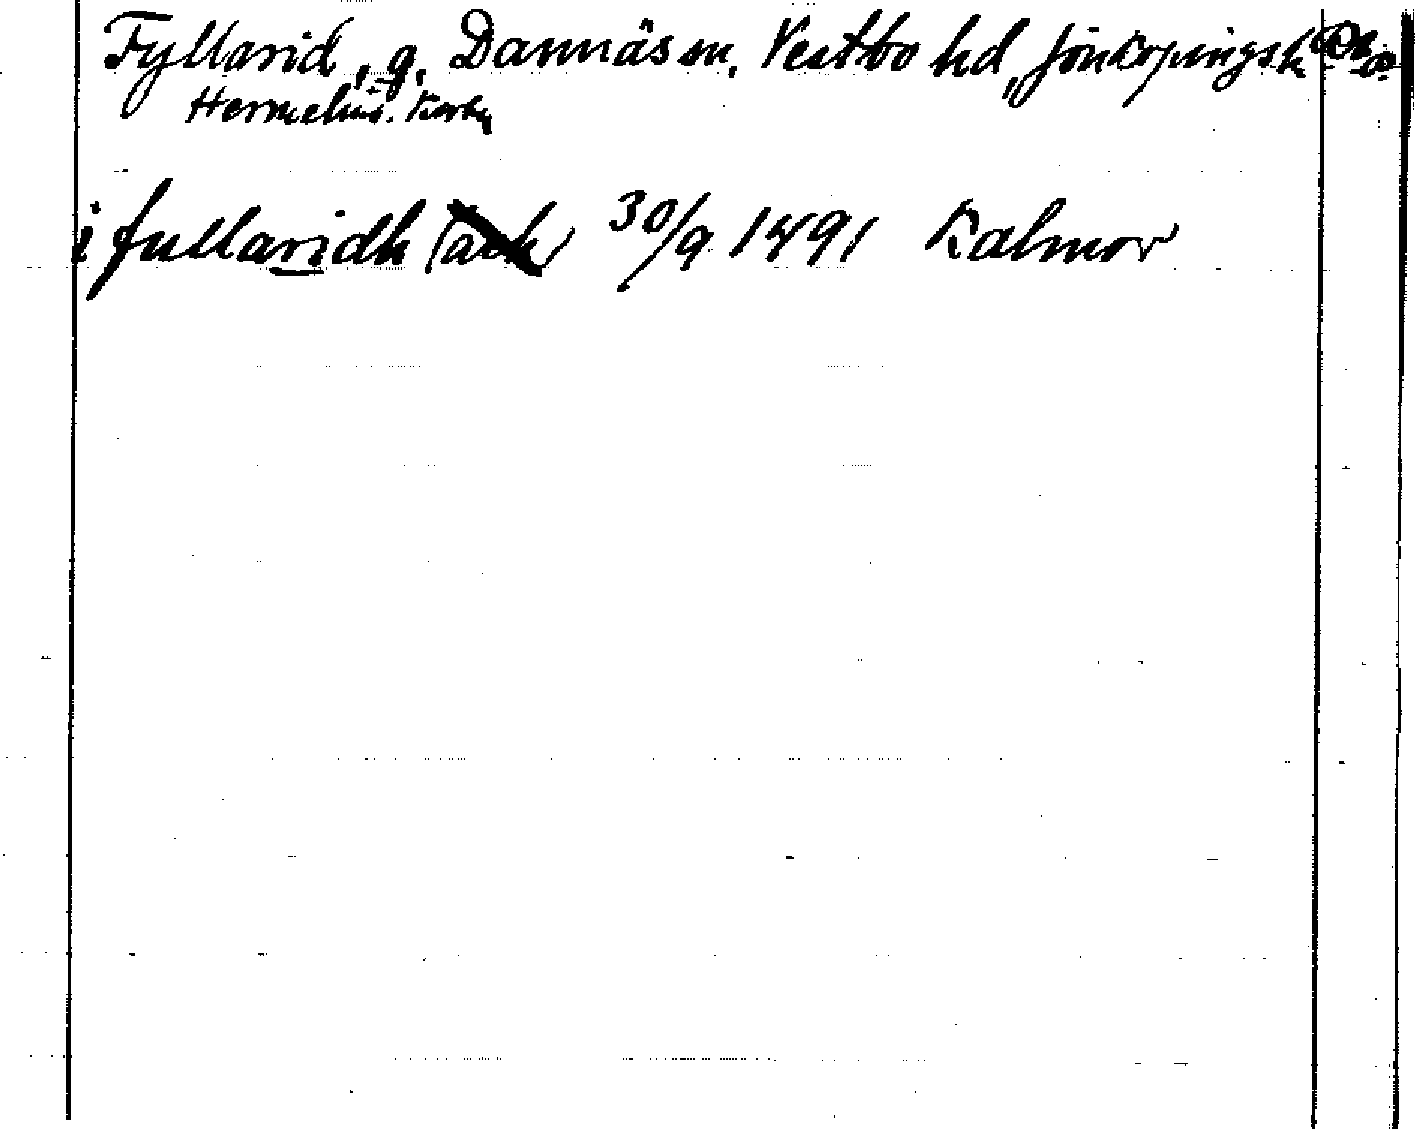 Fyllarid, g. Dannäs sn, Västbo hd, Jönköpings
Hermelins. Karta
i fullaridh 30/9 1491 Kalmar